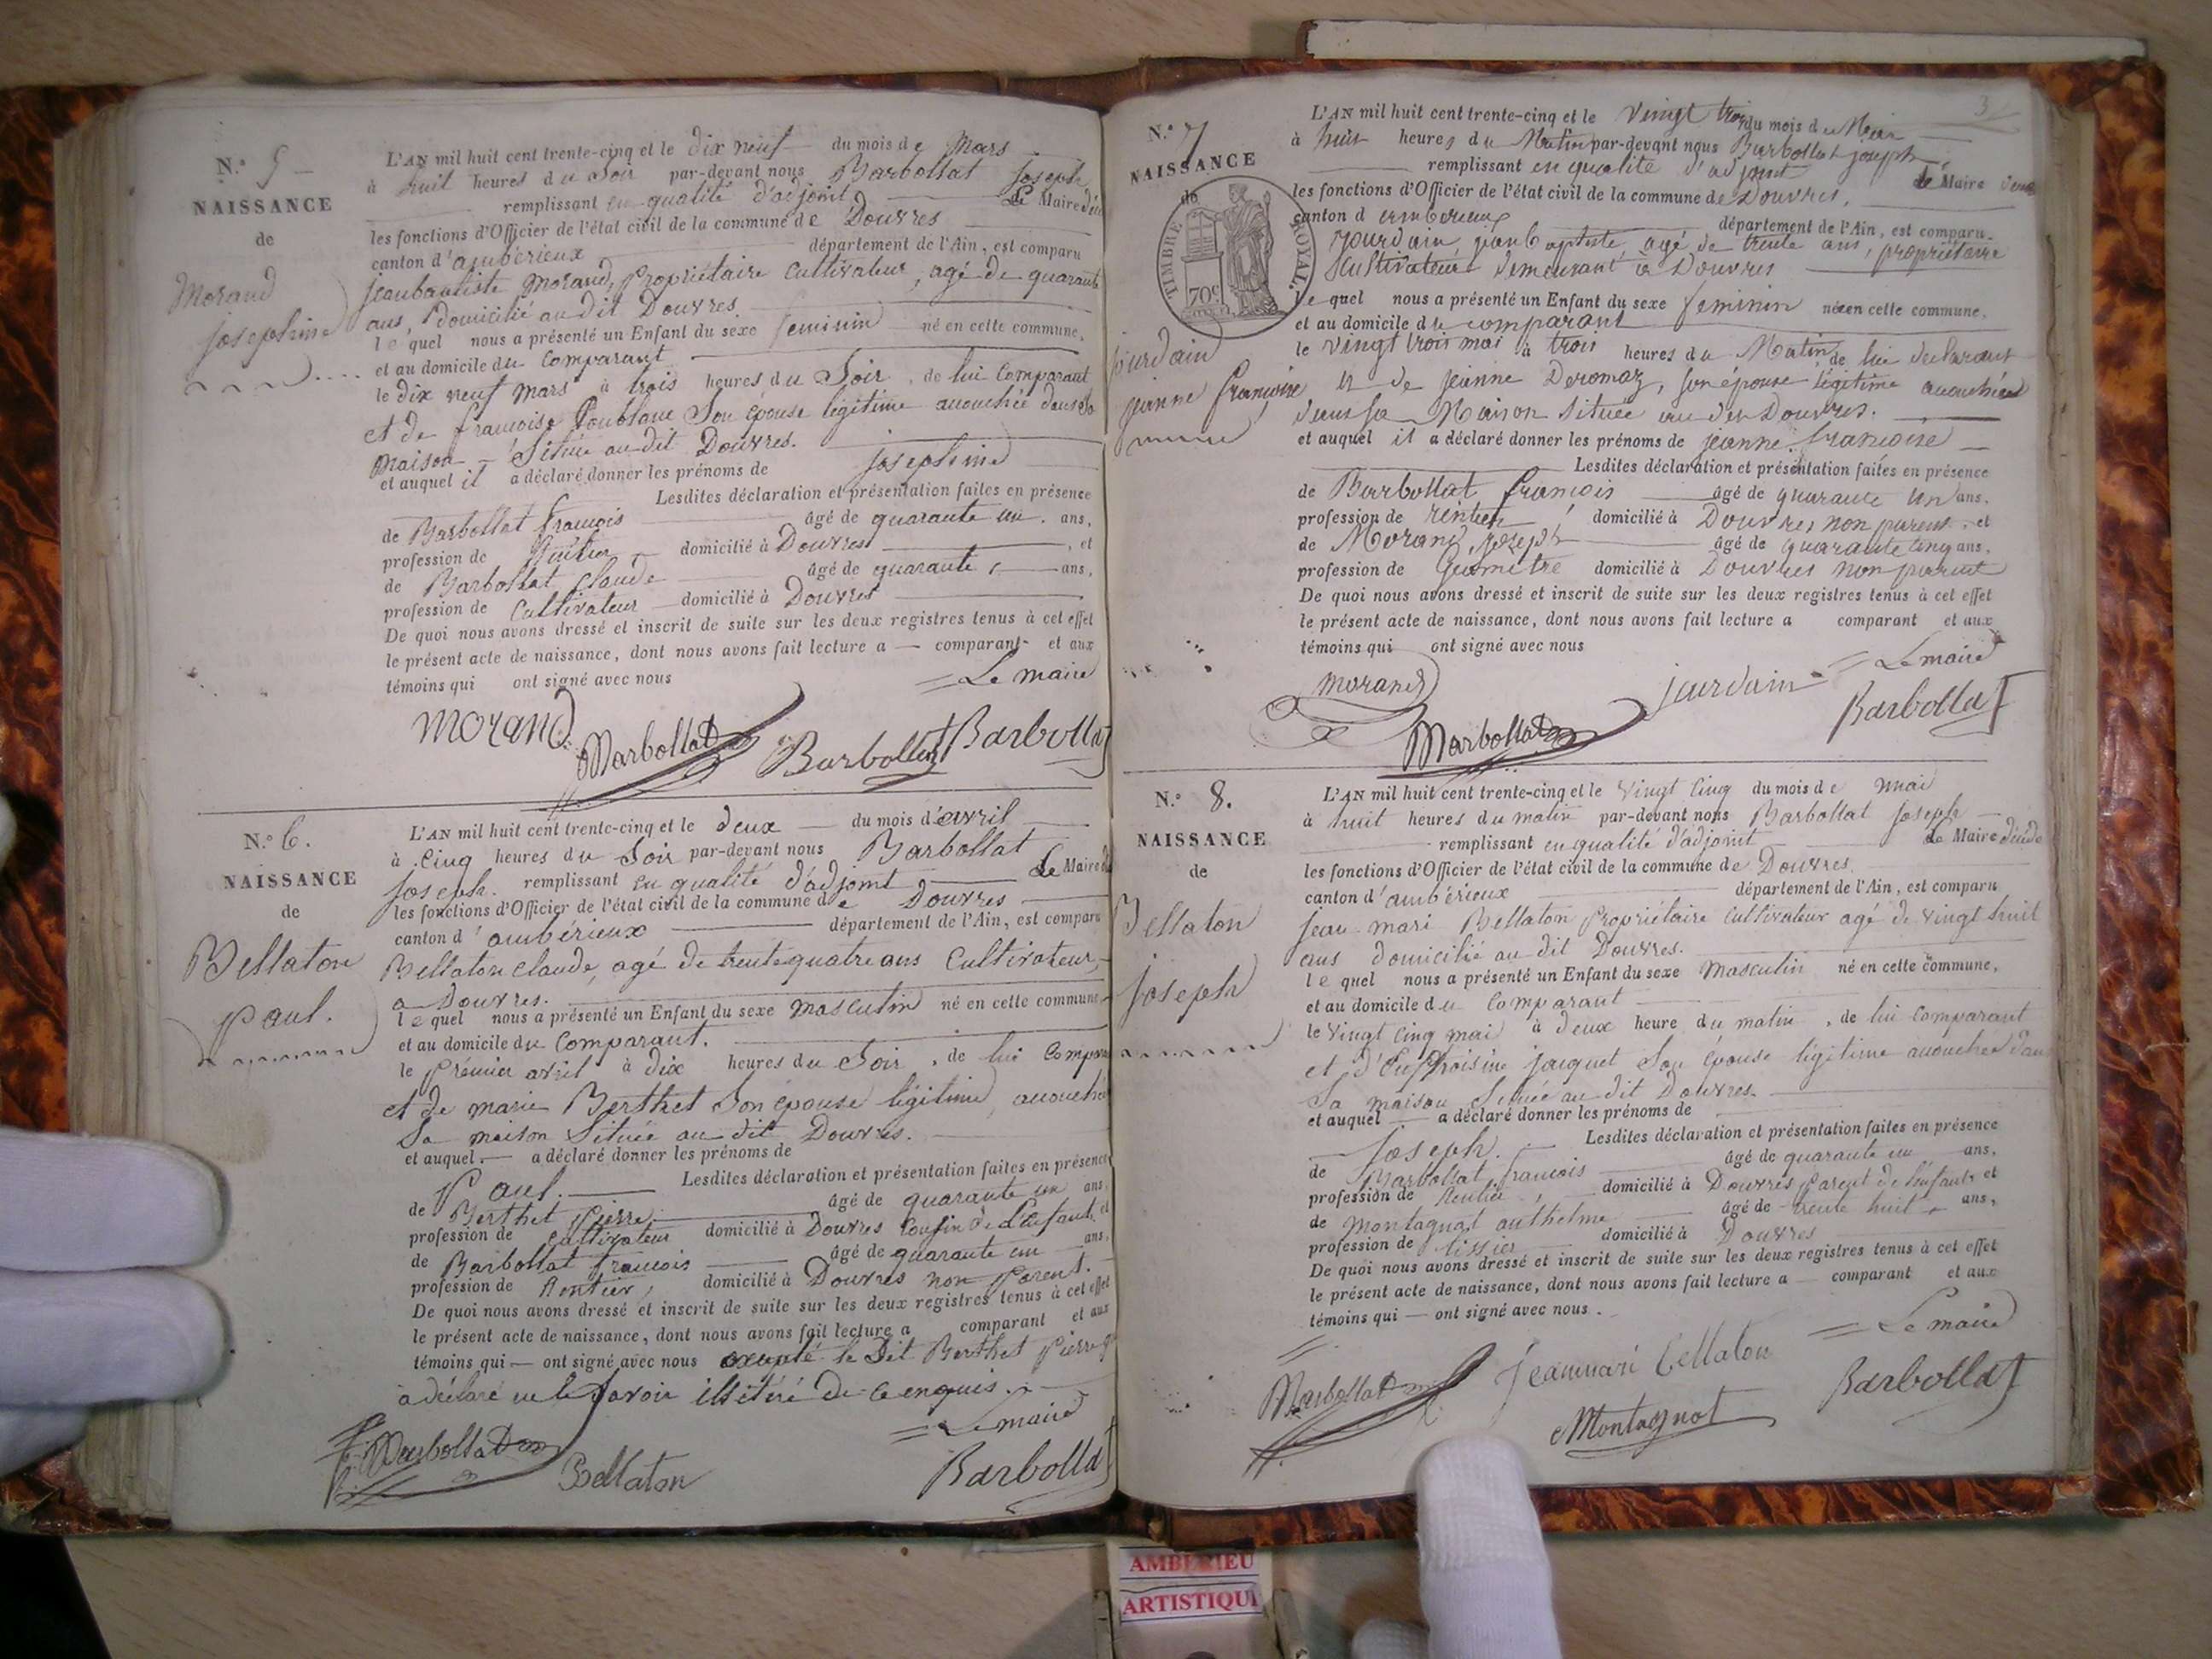 N.° 5
NAISSANCE
de
Morand
josephine
L'AN mil huit cent trente-cinq et le dix neuf du mois de Mars
à huit heures du soir par-devant nous Barbollat Joseph
remplissant en qualité d'adjoint Le Maire
les fonctions d'Officier de l'état civil de la commune de Douvres
canton d'ambérieux département de l'Ain, est comparu
jeanbautiste Morand, Propriétaire Cultivateur, agé de quarante
ans, domicilié au dit Douvres.
le quel nous a présenté un Enfant du sexe feminin né en cette commune,
et au domicile du Comparant
le dix neuf Mars à trois heures du Soir, de lui Comparant
et de francoise Son épouse légitime accouchée dans Sa
Maison Située au dit Douvres.
et auquel il a déclaré donner les prénoms de josephine
Lesdites déclaration et présentation faites en présence
de Barbollat francois âgé de quarante un ans,
profession de domicilié à Douvres, et
de Barbollat Claude âgé de quarante ans,
profession de Cultivateur domicilié à Douvres
De quoi nous avons dressé et inscrit de suite sur les deux registres tenus à cet effet
le présent acte de naissance, dont nous avons fait lecture a comparant et aux
témoins qui ont signé avec nous
Le maire
morand Barbollat Barbollat Barbollat
N.° 6.
NAISSANCE
de
Bellaton
Paul.
L'AN mil huit cent trente-cinq et le deux du mois d'avril
à Cinq heures du Soir par-devant nous Barbollat
joseph. remplissant en qualité d'adjoint Le Maire
les fonctions d'Officier de l'état civil de la commune de Douvres
canton d'ambérieux département de l'Ain, est comparu
Bellaton claude, agé de trente quatre ans Cultivateur,
a Douvres.
le quel nous a présenté un Enfant du sexe masculin né en cette commune
et au domicile du Comparant.
le Prémier avril à dix heures du Soir, de lui
et de marie Berthet Son épouse légitime, accouchée
Sa maison Située au dit Douvres.
et auquel a déclaré donner les prénoms de
Paul. Lesdites déclaration et présentation faites en présence
de Berthet Pierre âgé de quarante un ans
profession de Cultivateur domicilié à Douvres Cousin de L'enfant, et
de Barbollat francois âgé de quarante un ans,
profession de Rentier, domicilié à Douvres non Parent.
De quoi nous avons dressé et inscrit de suite sur les deux registres tenus à cet effet
le présent acte de naissance, dont nous avons fait lecture a comparant et aux
témoins qui ont signé avec nous excepté le dit Berthet Pierre
a déclaré ne le Savoir de ce enquis.
Le maire
Barbollat Bellaton Barbollat
3
N.° 7
NAISSANCE
de
TIMBRE ROYAL.
70c
jourdain
jeanne françoise
L'AN mil huit cent trente-cinq et le vingt trois du mois de Mai
à huit heures du Matin par-devant nous Barbollat joseph
remplissant en qualité d'adjoint Le Maire
les fonctions d'Officier de l'état civil de la commune de Douvres,
canton d'amberieux département de l'Ain, est comparu.
jourdain, jean baptiste, agé de trente ans, propriétaire
Cultivateur demeurant à Douvres
le quel nous a présenté un Enfant du sexe feminin née en cette commune,
et au domicile du comparant
le vingt trois mai à trois heures du Matin, de lui declarant
et de jeanne Deromaz, son épouse légitime accouchée
dans sa Maison située au dit Douvres.
et auquel il a déclaré donner les prénoms de jeanne françoise
Lesdites déclaration et présentation faites en présence
de Barbollat francois âgé de quarante un ans,
profession de rentier, domicilié à Douvres non parent, et
de Morand, joseph âgé de quarante cinq ans,
profession de Géomètre domicilié à Douvres non parent
De quoi nous avons dressé et inscrit de suite sur les deux registres tenus à cet effet
le présent acte de naissance, dont nous avons fait lecture a comparant et aux
témoins qui ont signé avec nous
Le maire
morand Barbollat jourdain Barbollat
N.° 8.
NAISSANCE
de
Bellaton
joseph
L'AN mil huit cent trente-cinq et le vingt Cinq du mois de mai
à huit heures du matin par-devant nous Barbollat joseph
remplissant en qualité d'adjoint Le Maire
les fonctions d'Officier de l'état civil de la commune de Douvres.
canton d'ambérieux département de l'Ain, est comparu
jean mari Bellaton Propriétaire Cultivateur agé de vingt huit
ans domicilié au dit Douvres.
le quel nous a présenté un Enfant du sexe Masculin né en cette commune,
et au domicile du Comparant
le vingt Cinq mai à deux heure du matin, de lui Comparant
et d'Eufroisine jacquet Son épouse légitime accouchée dans
Sa maison Située au dit Douvres.
et auquel a déclaré donner les prénoms de
joseph. Lesdites déclaration et présentation faites en présence
de Barbollat francois âgé de quarante un ans,
profession de Rentier, domicilié à Douvres Parent de l'enfant, et
de Montagnat anthelme âgé de trente huit ans,
profession de tissier domicilié à Douvres
De quoi nous avons dressé et inscrit de suite sur les deux registres tenus à cet effet
le présent acte de naissance, dont nous avons fait lecture a comparant et aux
témoins qui ont signé avec nous.
Le maire
Barbollat Jeanmari bellaton Montagnat Barbollat
AMBERIEU
ARTISTIQUE